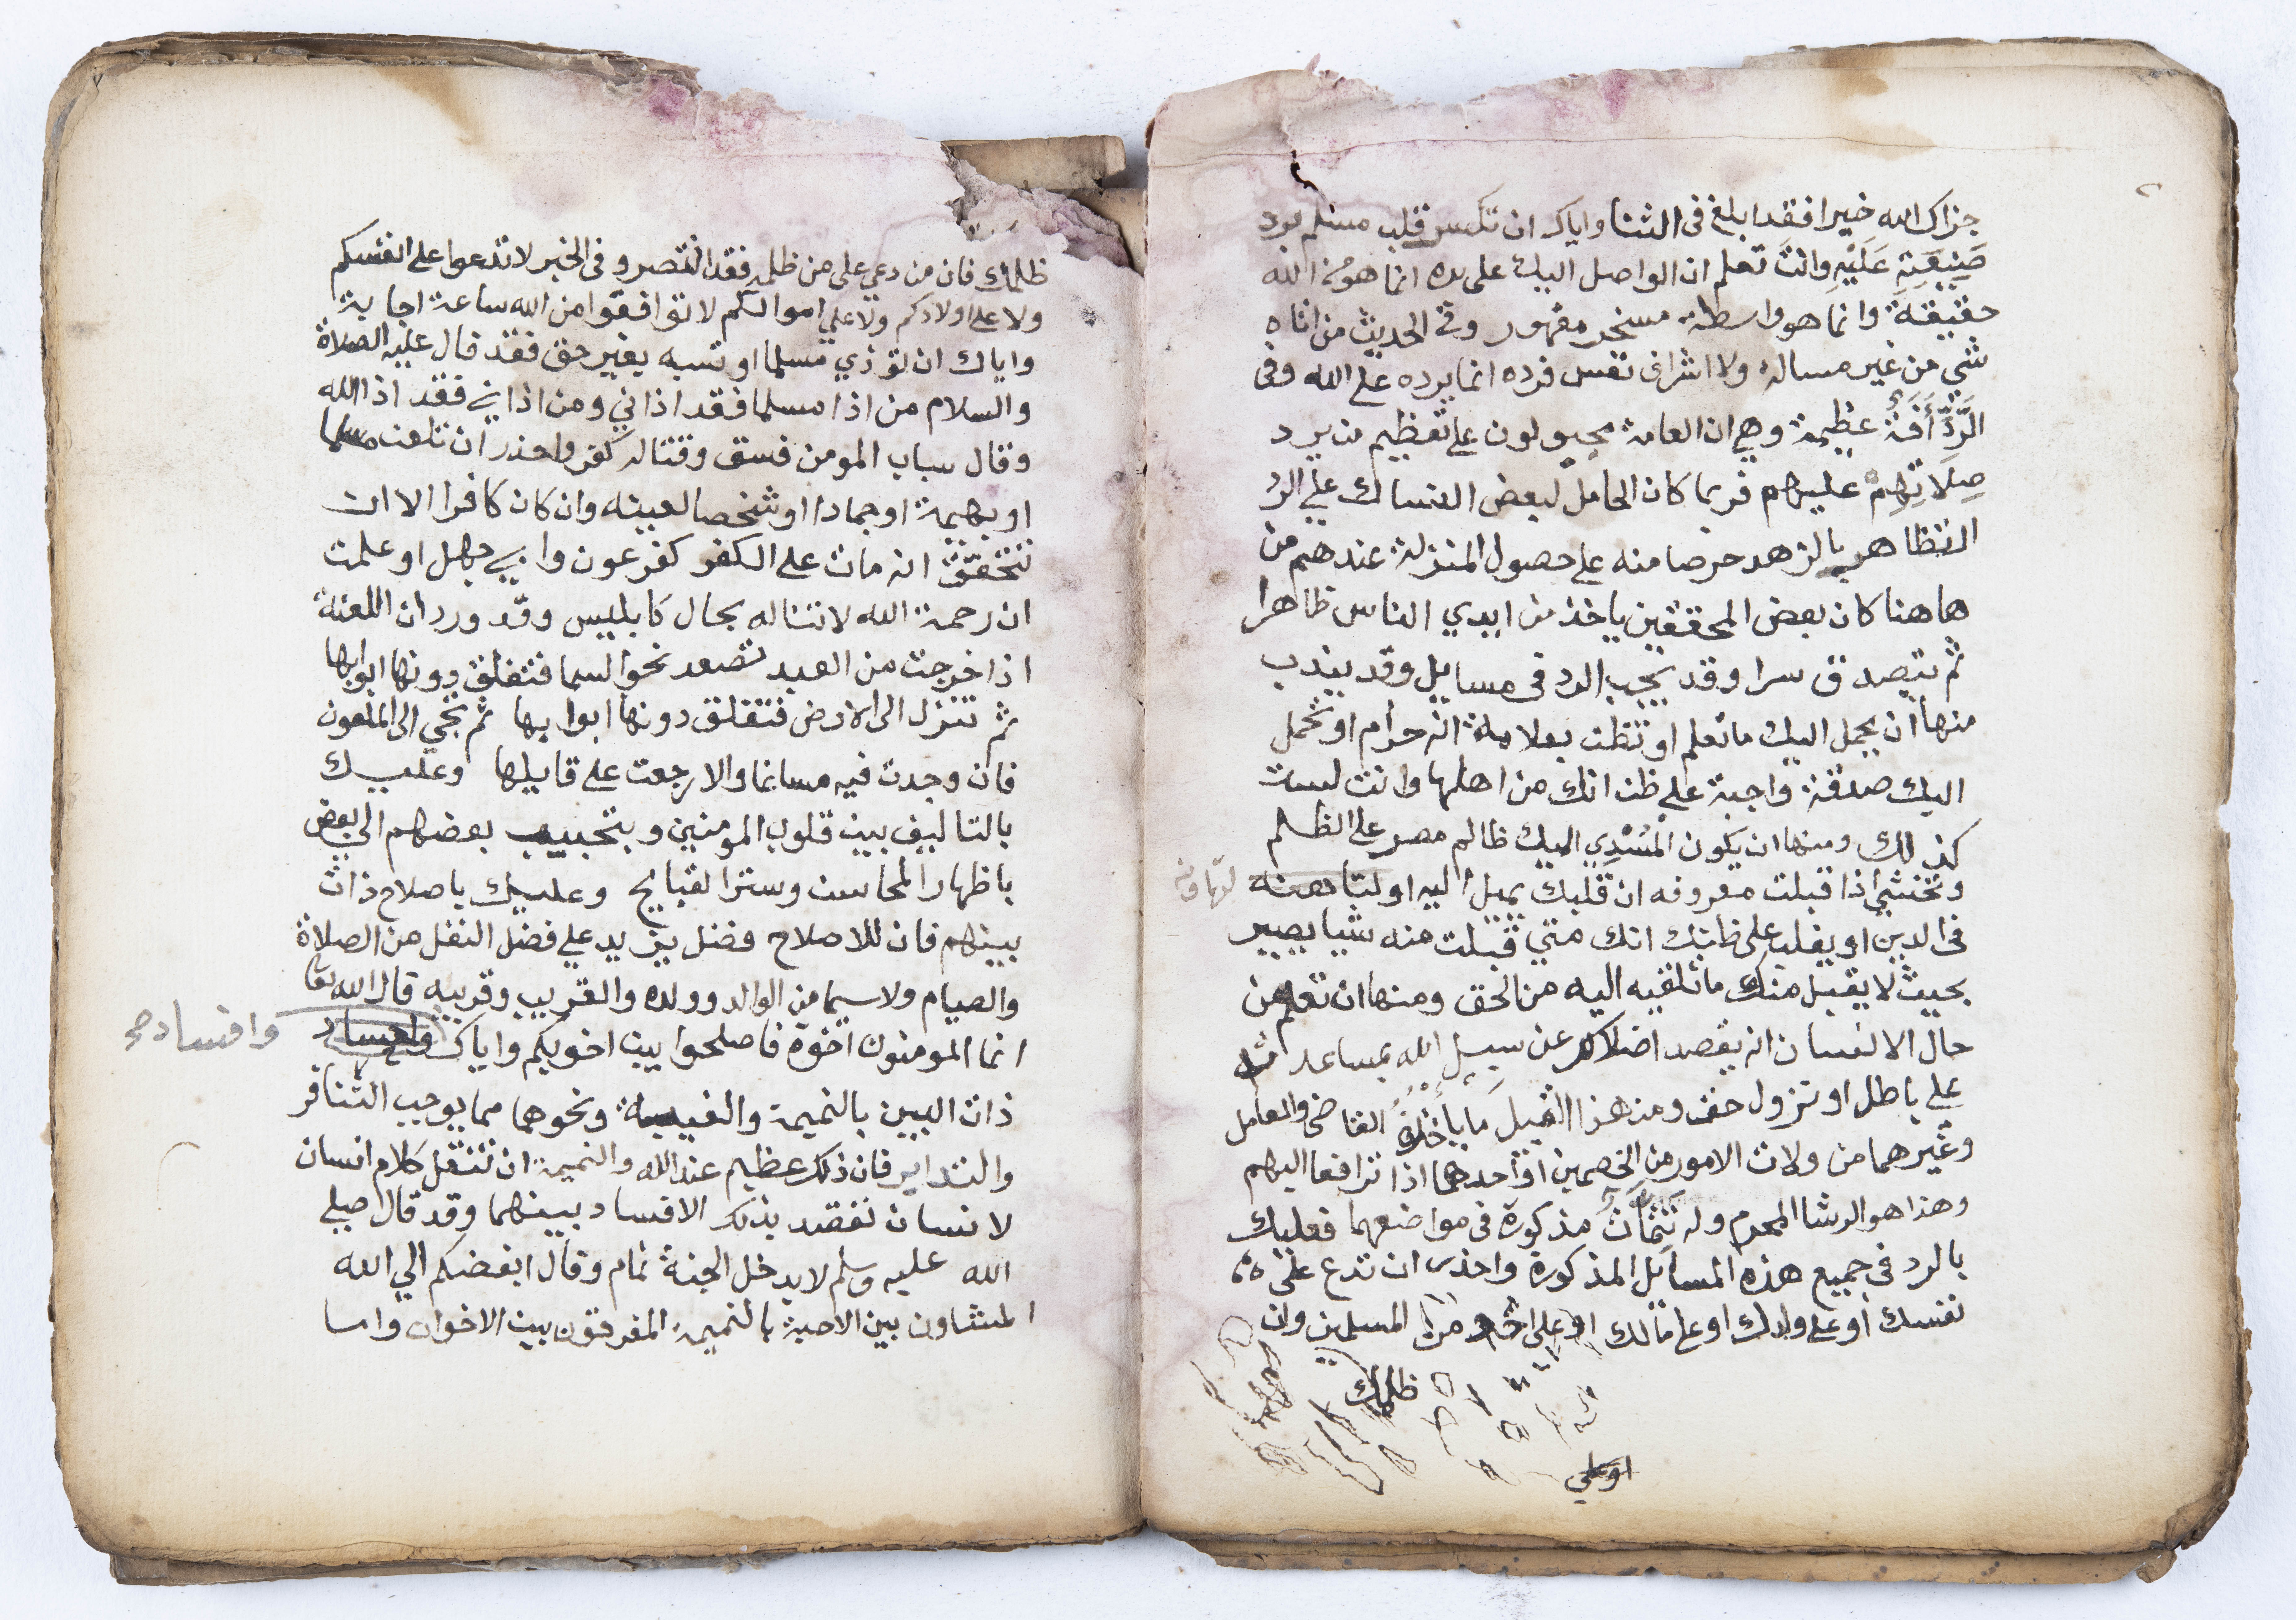 جزاك الله خيرا فقد ابلغ في الثنا واياك ان تكسر قلب مسلم برد
صَنِيعَتِهِ عَلَيْهِ وانتَ تعلم ان الواصل اليك على يده انما هو من الله
حقيقة وانما هو واسطة مسخر مقهور وفي الحديث من اتاه
شي من غير مسالة ولا اشراف نفس فرده انما يرده على الله وفي
الرَّدِّ أَفَةٌ عظيمة وهي ان العامة مجبولون على تعظيم من يرد
صِلَاتِهِمْ عليهم فربما كان الحامل لبعض النساك على الرد
التظاهر بالزهد حرصا منه على حصول المنزلة عندهم من
هاهنا كان بعض المحققين ياخذ من ايدي الناس ظاهرا
ثم يتصدق سرا وقد يجب الرد في مسايل وقد يندب
منها ان يحمل اليك ما تعلم او تظن بعلامة انه حرام او تحمل
اليك صدقة واجبة على ظن انك من اهلها وانت لست
كذلك ومنها ان يكون المُسْدِي اليك ظالم مصر على الظلم
وتخشى اذا قبلت معروفه ان قلبك يميل اليه او لتابعته
في الدين او يغلب على ظنك انك متي قبلت منه شيا يصير
بحيث لا يقبل منك ما تلقيه اليه من الحق ومنها ان تعلم من
حال الانسان انه يقصد اضلالك عن سبيل الله بمساعدته
على باطل او نزول حق ومن هذا القبيل مَا يأخُذُهُ القاضي والعامل
وغيرهما من ولات الامور من الخصمين او احدهما اذا ترافعا اليهم
وهذا هو الرشا المحرم وله تتمات مذكورة في مواضعهما فعليك
بالرد في جميع هذه المسائل المذكورة واحذر ان تدع على
نفسك او على ولدك او على مالك او على احد من المسلمين وان
ظلمك
او على
ظلمك فان من دعي على من ظلمه فقد انتصر وفي الخبر لا تدعوا على انفسكم
ولا على اولادكم ولا على اموالكم لا توافقوا من الله ساعة اجابة
واياك ان توذي مسلما او تسبه بغير حق فقد قال عليه الصلاة
والسلام من اذا مسلما فقد اذاني ومن اذاني فقد اذا الله
وقال سباب المومن فسق وقتاله كفر واحذر ان تلعن مسلما
او بهيمة او جمادا او شخصا لعينه وان كان كافرا الا ان
تتحقق انه مات على الكفر كفرعون وابي جهل او علمت
ان رحمة الله لا تناله بحال كابليس وقد ورد ان اللعنة
اذا خرجت من العبد تصعد نحو السما فتغلق دونها ابوابها
ثم تنزل الى الارض فتغلق دونها ابوابها ثم تجي الى الملعون
فان وجدت فيه مساغا والا رجعت على قايلها وعليك
بالتاليف بين قلوب المومنين وبتحبيب بعضهم الى بعض
باظهار المحاسن وستر القبايح وعليك باصلاح ذات
بينهم فان للاصلاح فضل يزيد على فضل النفل من الصلاة
والصيام ولا سيما من الوالد وولده والقريب وقريبه قال الله تعا
انما المومنون اخوة فاصلحوا بين اخويكم واياك وافساد
وافساد صح
ذات البين بالنميمة والغيبة ونحوهما مما يوجب التنافر
والتدابر فان ذلك عظيم عند الله والنميمة ان تنقل كلام انسان
لانسان تقصد بذلك الافساد بينهما وقد قال صلى
الله عليه وسلم لا يدخل الجنة نمام وقال ابغضكم الي الله
المشاون بين الاحبة بالنميمة المفرقون بين الاخوان واما